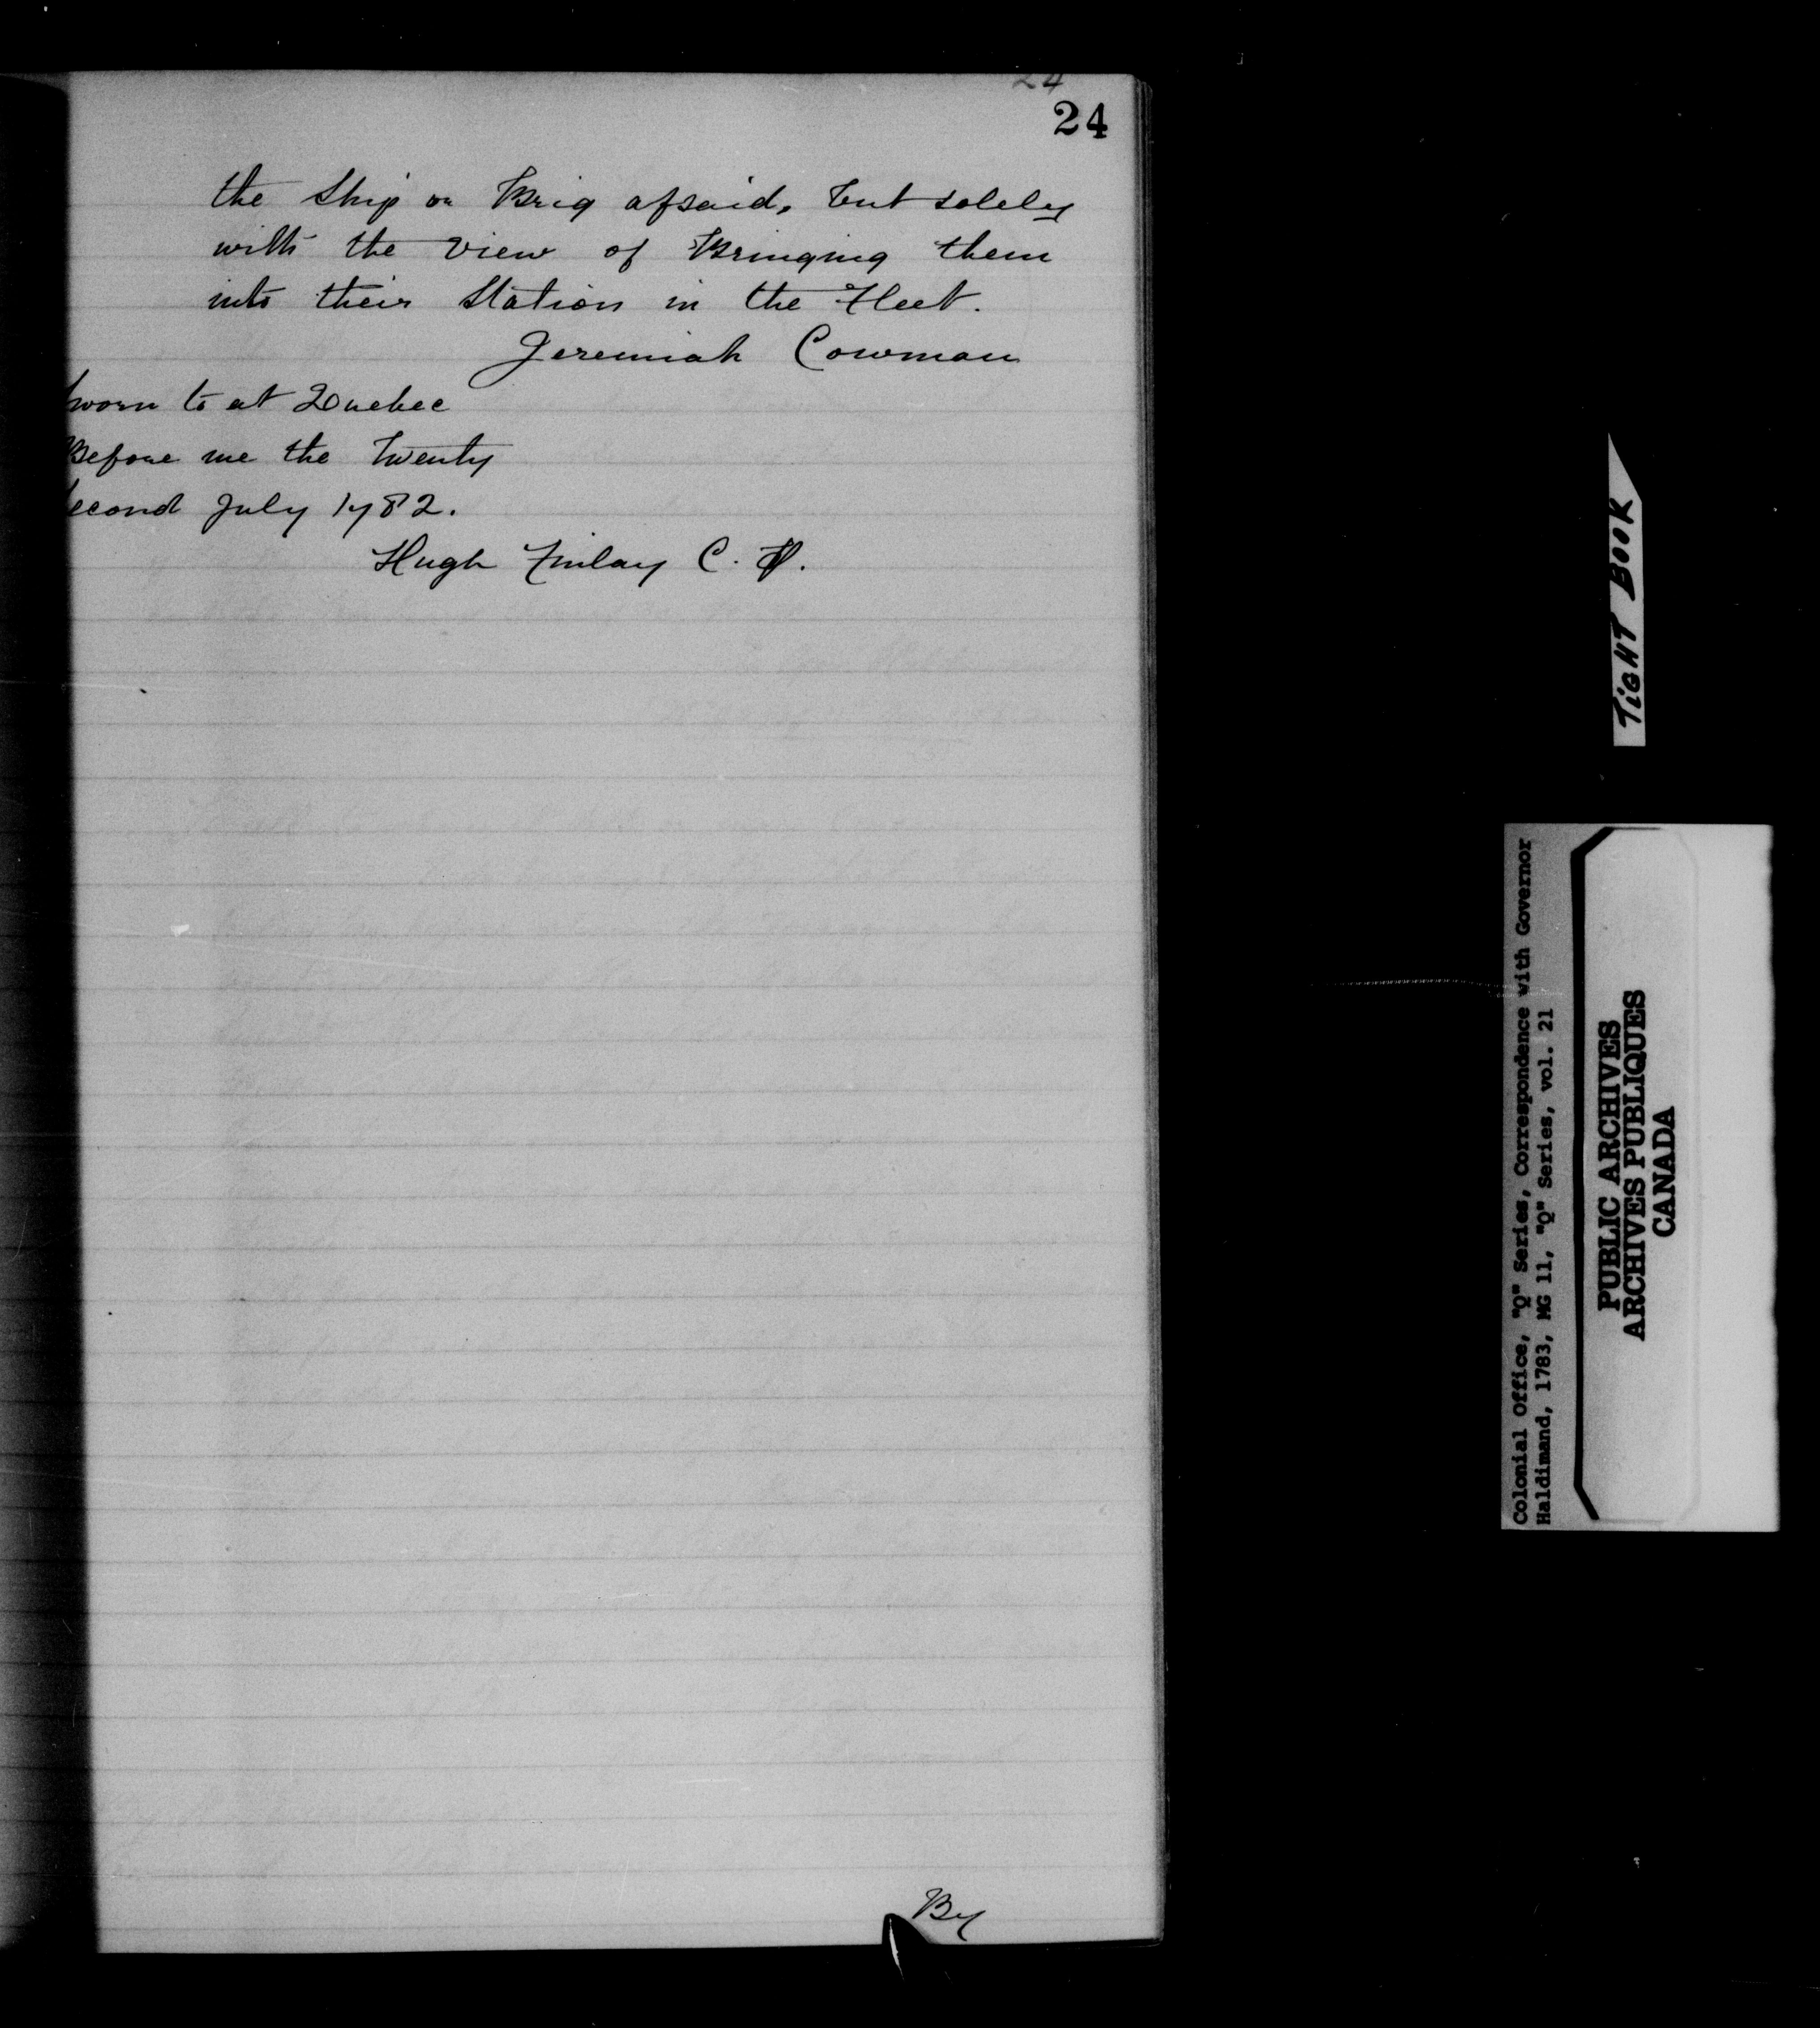 24
24
the Ship or Brig afsaid, but solely
with the view of Bringing them
into their Station in the Fleet.
Jeremiah Cowman
sworn to at Quebec
Before me the Twenty
second July 1782.
Hugh Finlay C. P.
By
TIGHT BOOK
Colonial Office, "Q" Series, Correspondence with Governor
Haldimand, 1783, MG 11, "Q" Series, vol. 21
PUBLIC ARCHIVES
ARCHIVES PUBLIQUES
CANADA